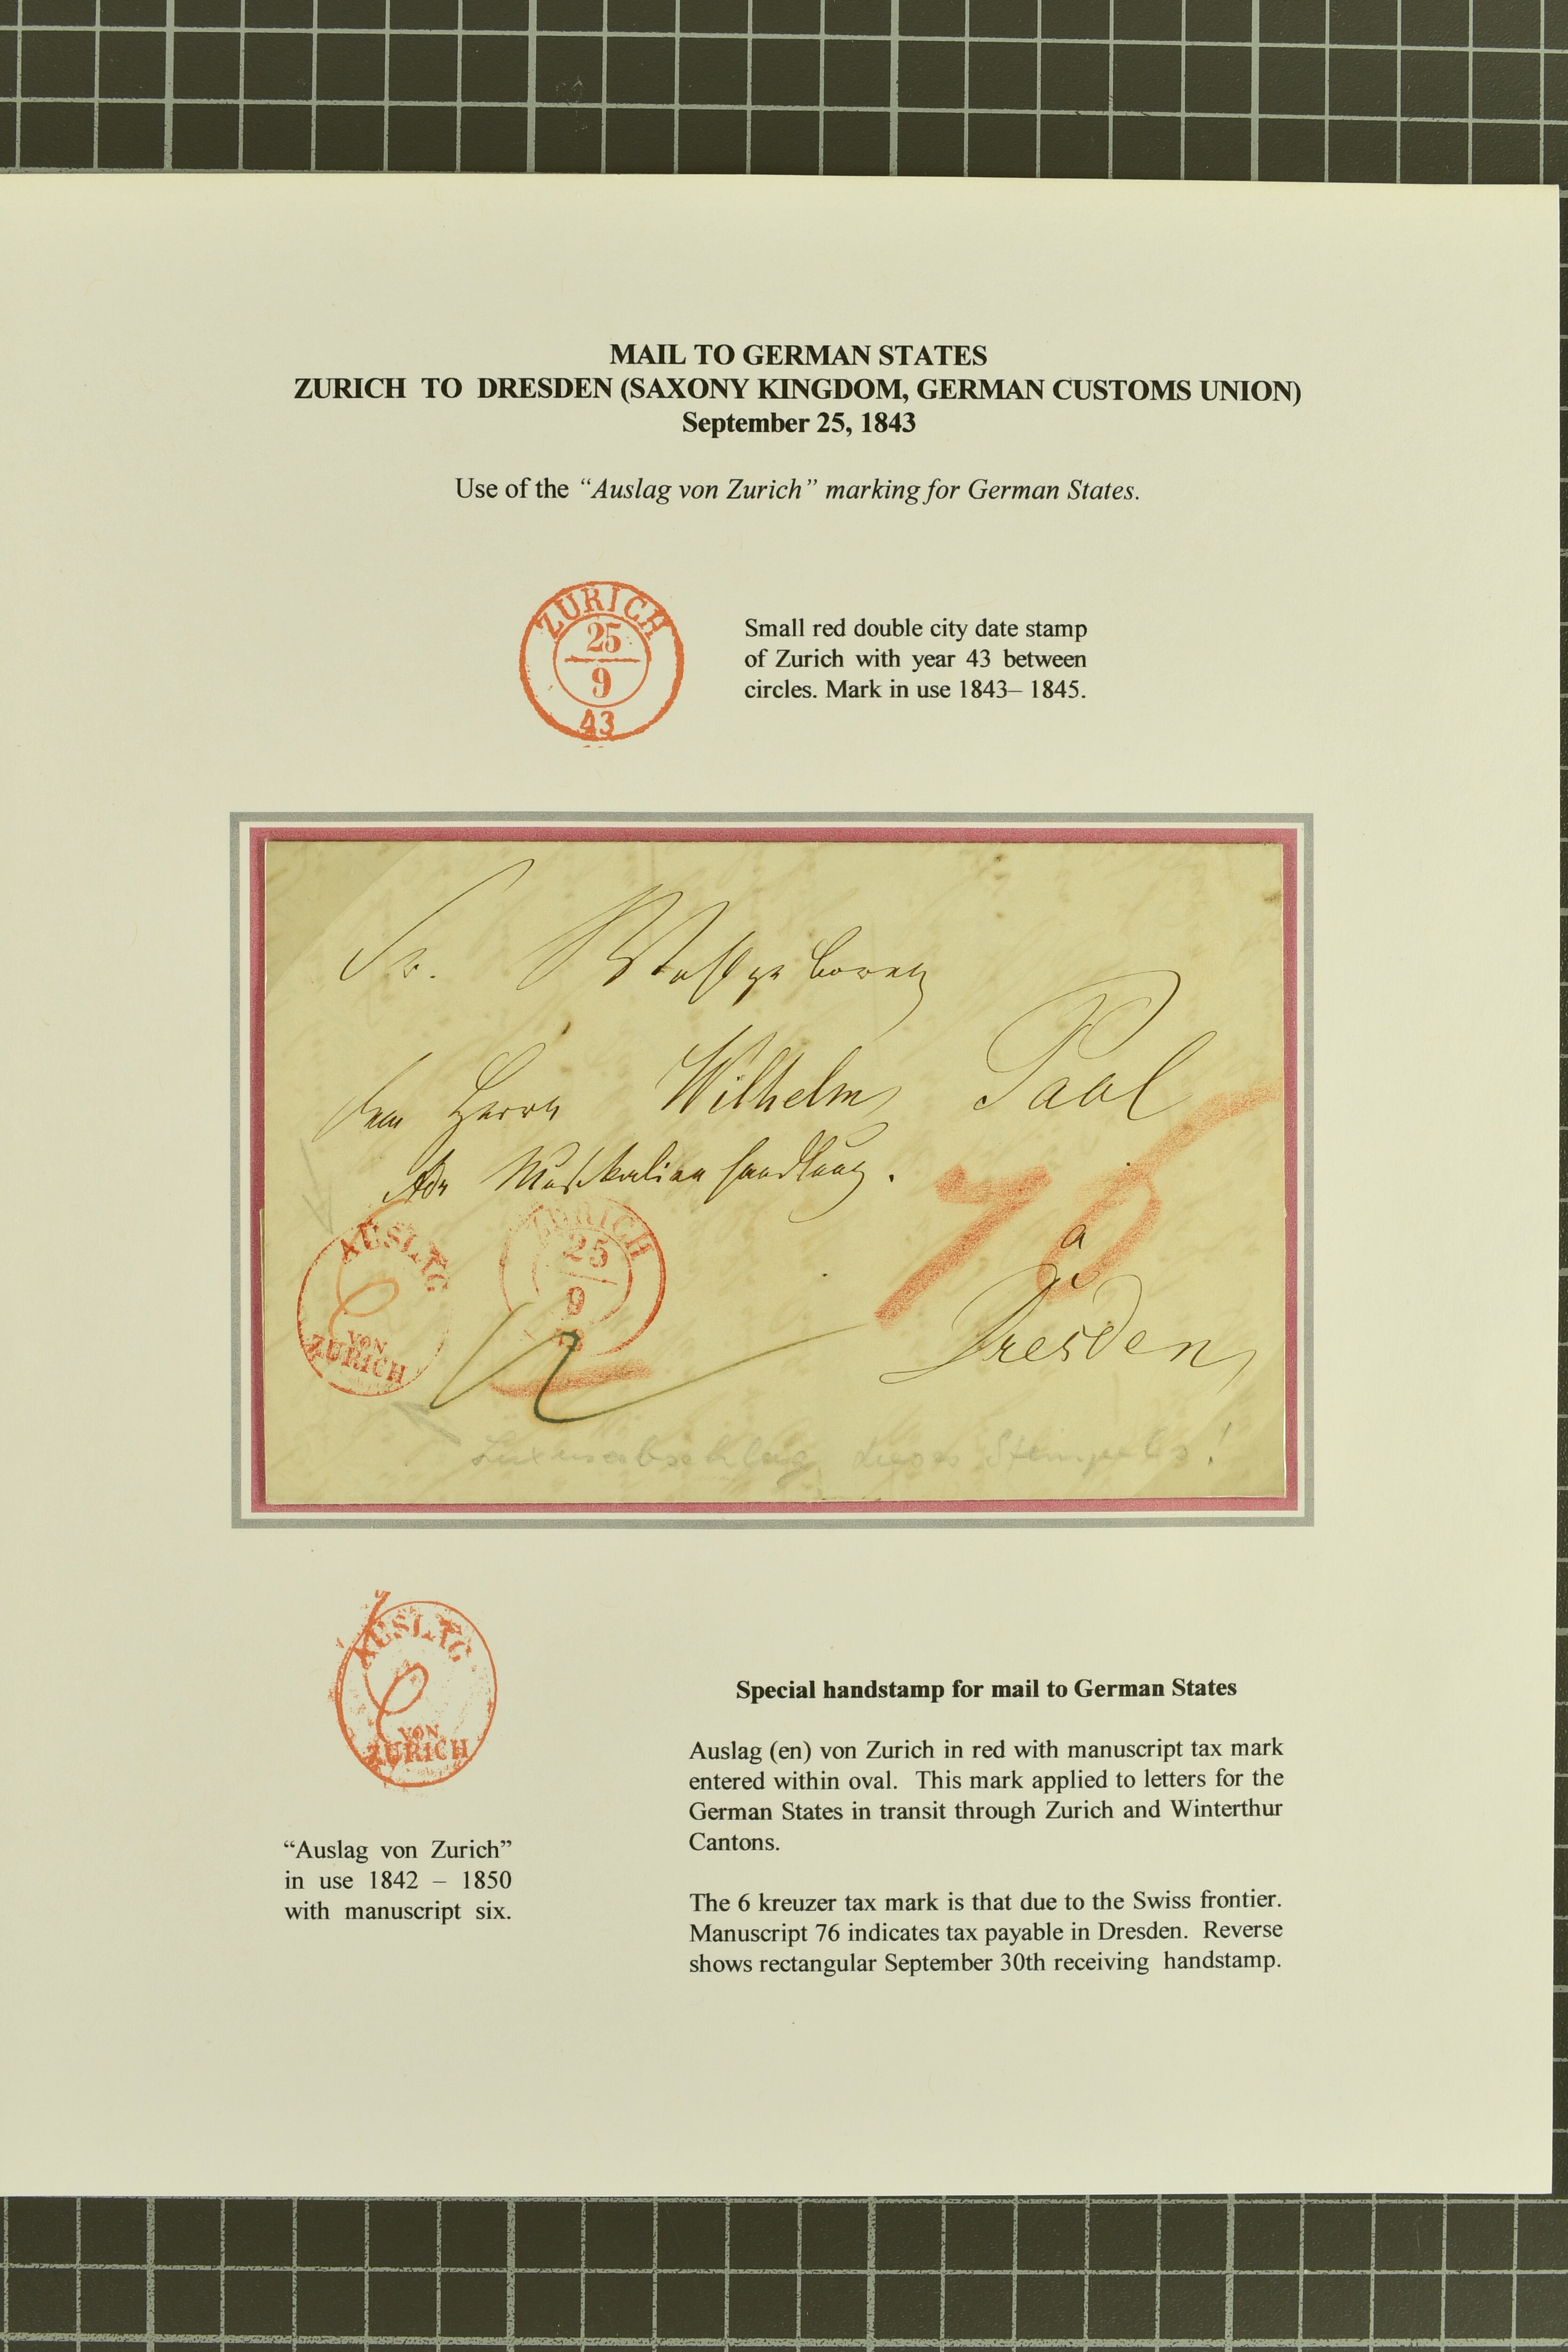 MAIL TO GERMAN STATES
ZURICH TO DRESDEN (SAXONY KINGDOM, GERMAN CUSTOMS UNION)
September 25, 1843
Use of the “Auslag von Zurich” marking for German States.
ZURICH
25
9
43
Small red double city date stamp
of Zurich with year 43 between
circles. Mark in use 1843– 1845.
Sr. Wohlgeboren
Herrn Wilhelm Paul
Musikalienhandlung.
AUSLAG
6
VON
ZURICH
ZURICH
25
9
76
a
Dresden
Luxusabschlag dieses Stempels!
AUSLAG
6
VON
ZURICH
“Auslag von Zurich”
in use 1842 – 1850
with manuscript six.
Special handstamp for mail to German States
Auslag (en) von Zurich in red with manuscript tax mark
entered within oval. This mark applied to letters for the
German States in transit through Zurich and Winterthur
Cantons.
The 6 kreuzer tax mark is that due to the Swiss frontier.
Manuscript 76 indicates tax payable in Dresden. Reverse
shows rectangular September 30th receiving handstamp.